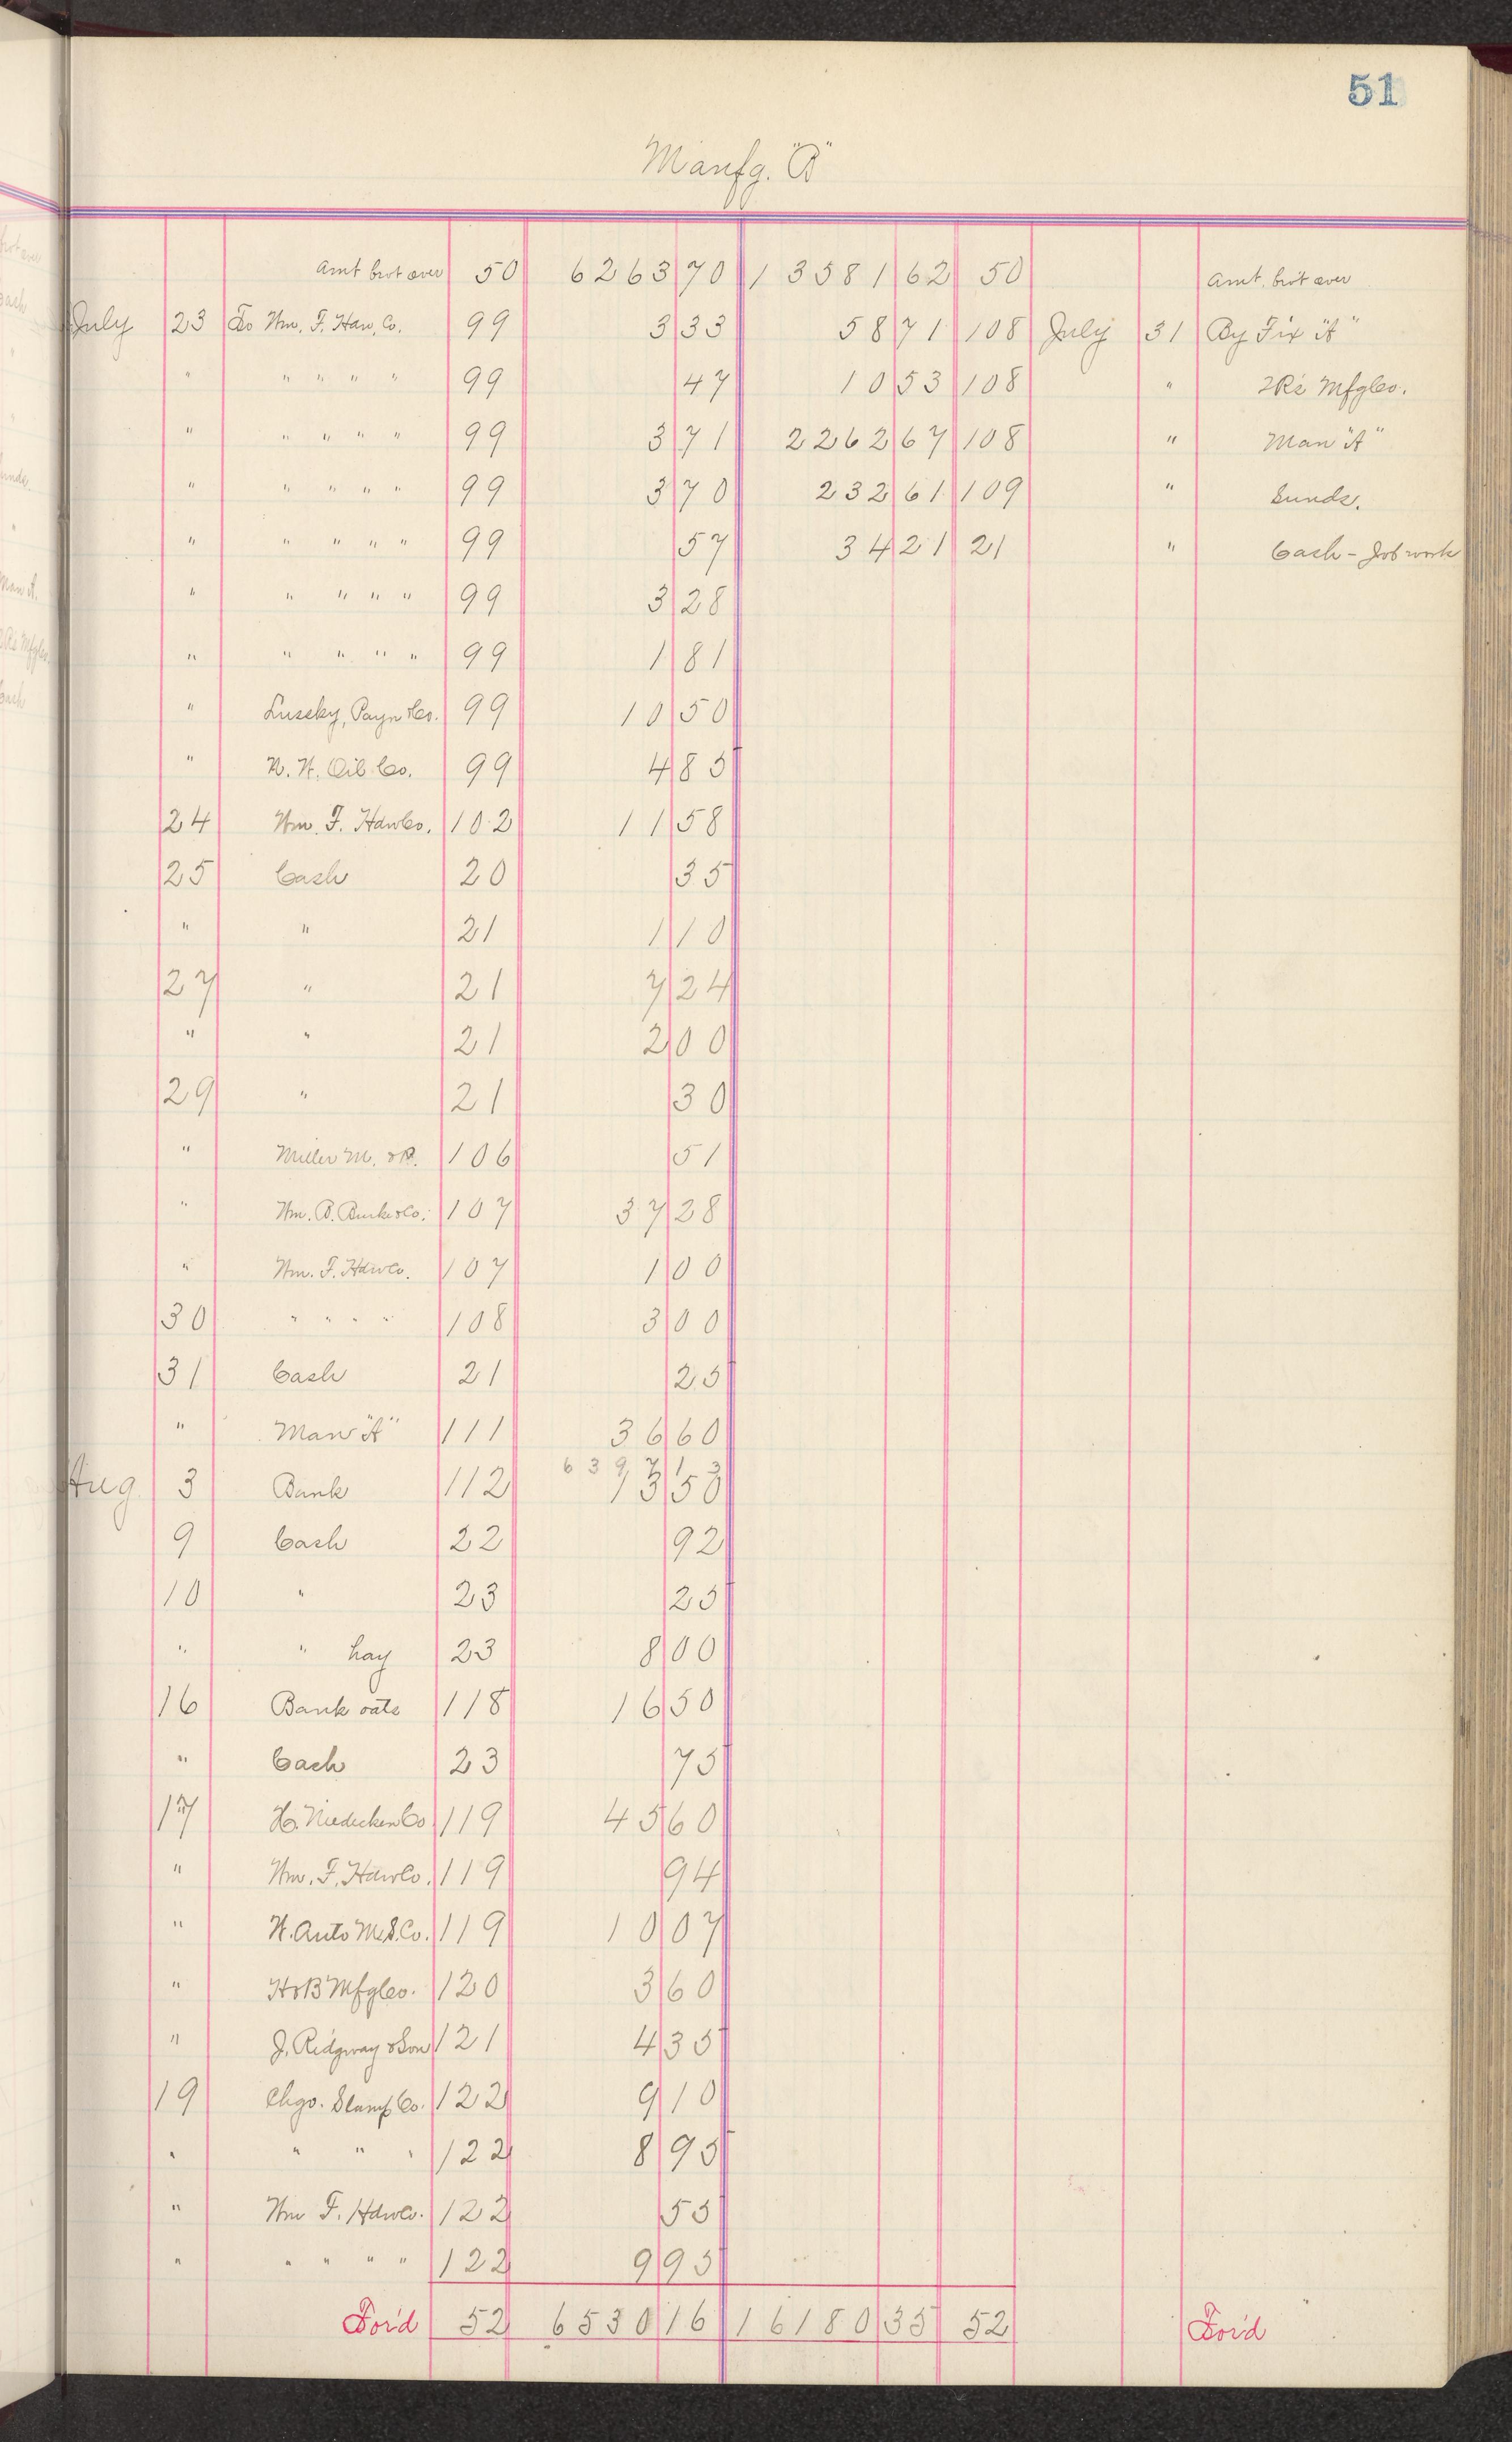 51
Manfg. "A"
Amt brot over 50 6263 70 13581 62 50 Amt. bro't over
July 23 To Wm. F. Haw. Co. 99 3 33 58 71 108 July 31 By Fix "A"
" " " " " 99 47 10 53 108 " Mfg Co.
" " " " " 99 3 71 2262 67 108 " Man "A"
" " " " " 99 3 70 232 61 109 " Sunds.
" " " " " 99 57 34 21 21 " Cash - Job work
" " " " " 99 3 28
" " " " " 99 1 81
" Luscky, Payn & Co. 99 10 50
" N. W. Oil Co. 99 4 85
24 Wm. F. Hdw Co. 102 11 58
25 Cash 20 35
" " 21 1 10
27 " 21 7 24
" " 21 2 00
29 " 21 30
" Miller M. & B. 106 51
" Wm. B. Burke & Co. 107 37 28
" Wm. F. Hdw Co. 107 1 00
30 " " " " 108 3 00
31 Cash 21 25
" Man "A" 111 36 60
6397 13
Aug 3 Bank 112 13 50
9 Cash 22 92
10 " 23 25
" " hay 23 8 00
16 Bank oats 118 16 50
" Cash 23 75
17 H. Niedecken Co 119 45 60
" Wm. F. Hdw Co. 119 94
" W. Auto M&S. Co. 119 10 07
" H & B Mfg Co. 120 3 60
" J. Ridgway & Son 121 4 35
19 Chgo. Stamp Co. 122 9 10
" " " " 122 8 95
" Wm F. Hdw Co. 122 55
" " " " " 122 9 95
For'd 52 6530 16 16180 35 52 For'd